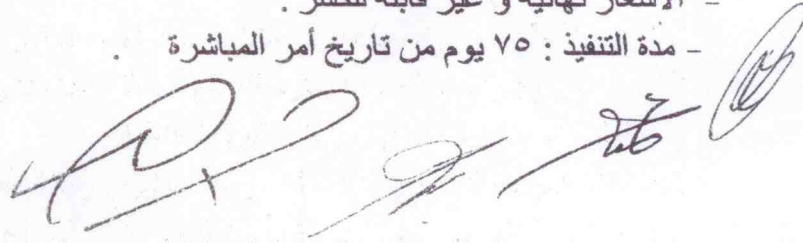 - الأسعار نهائية و غير قابلة للكسر .
- مدة التنفيذ : ٧٥ يوم من تاريخ أمر المباشرة .